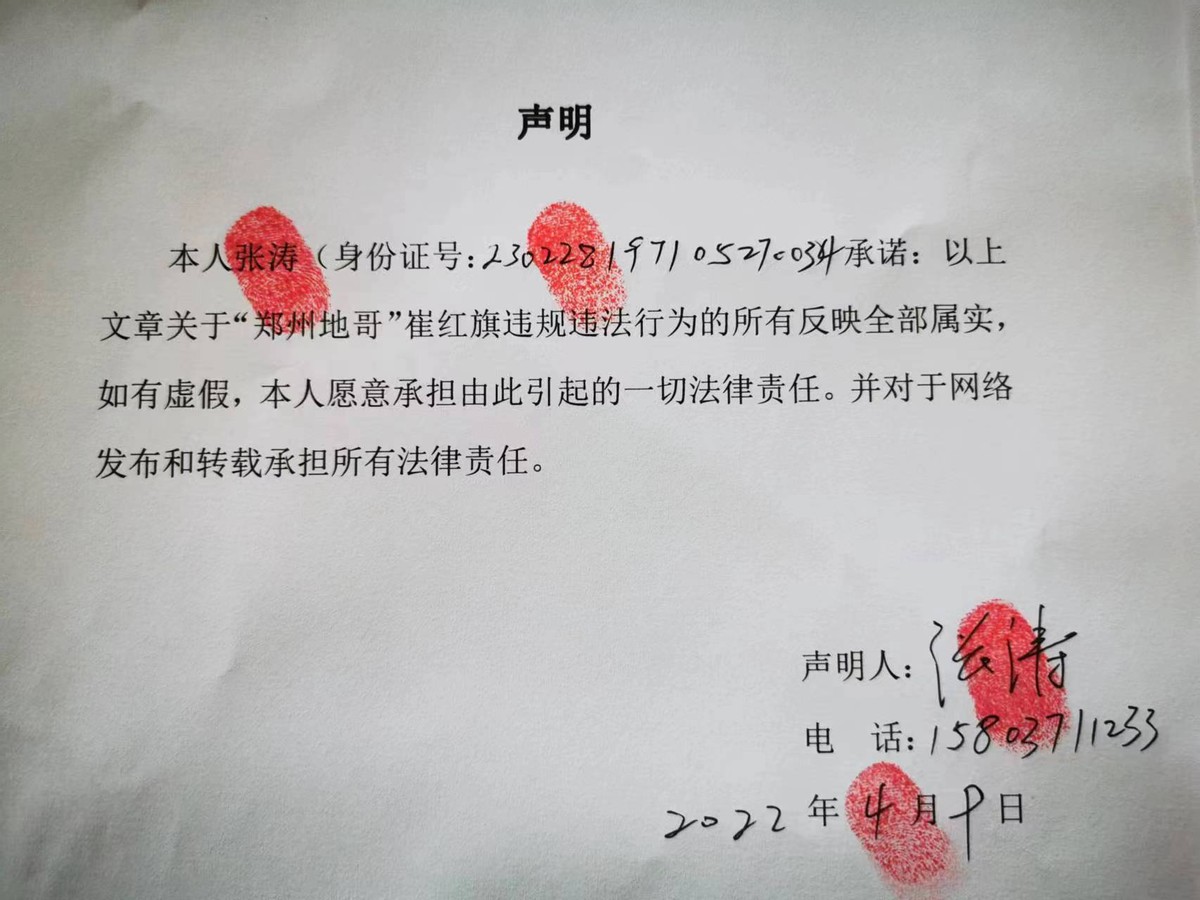 声明
本人张涛（身份证号:230228197105270034承诺：以上
文章关于“郑州地哥”崔红旗违规违法行为的所有反映全部属实，
如有虚假，本人愿意承担由此引起的一切法律责任。并对于网络
发布和转载承担所有法律责任。
声明人：张涛
电 话：15803711233
2022年4月9日